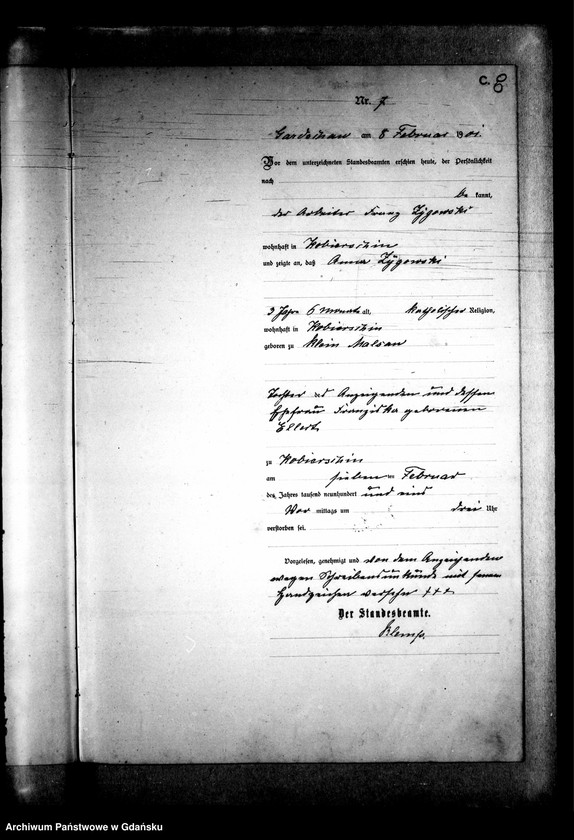 C. 8
Nr. 7
am 8 Februar 1901.
Vor dem unterzeichneten Standesbeamten erschien heute, der Persönlichkeit
nach
be kannt,
der Arbeiter Franz Zÿgowski
wohnhaft in Kobierschin
und zeigte an, daß Anna Zÿgowski
3 Jahre 6 Monate alt, katholischer Religion,
wohnhaft in Kobierschin
geboren zu Klein Malsau
Tochter des Anzeigenden und dessen
Ehefrau Franziska geborenen
Ellert
zu Kobierschin
am sieben ten Februar
des Jahres tausend neunhundert und eins
Vor mittags um drei Uhr
verstorben sei.
Vorgelesen, genehmigt und von dem Anzeigenden
wegen Schreibensunkunde mit seinem
Handzeichen versehen +++
Der Standesbeamte.
Archiwum Państwowe w Gdańsku